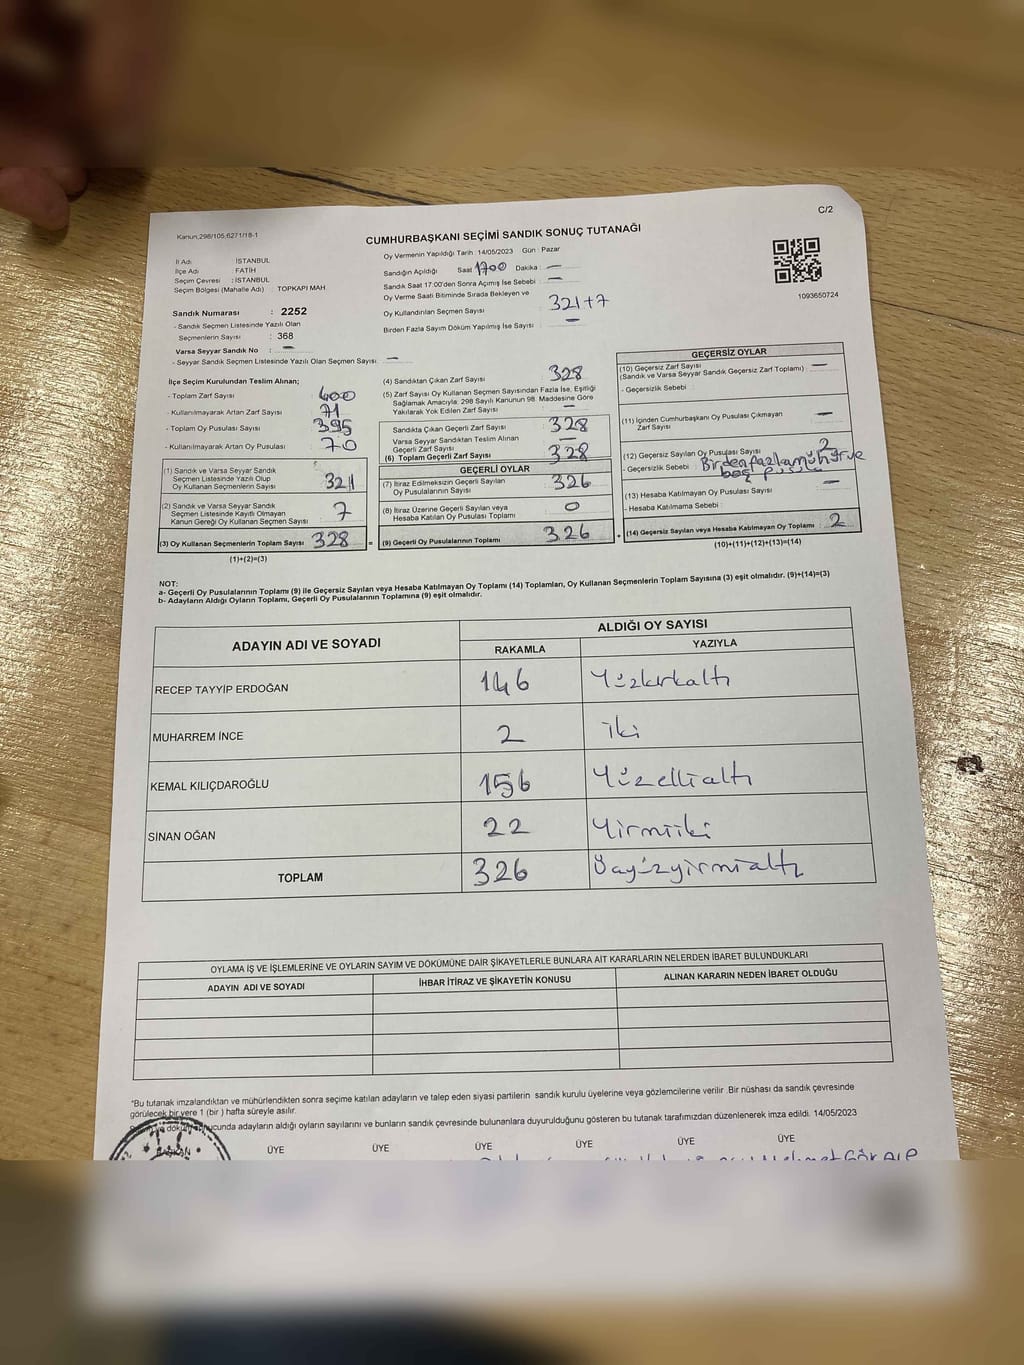 C/2
Kanun;298/105;6271/18-1
CUMHURBAŞKANI SEÇİMİ SANDIK SONUÇ TUTANAĞI
İl Adı : İSTANBUL
İlçe Adı : FATİH
Seçim Çevresi : İSTANBUL
Seçim Bölgesi (Mahalle Adı) : TOPKAPI MAH
Oy Vermenin Yapıldığı Tarih 14/05/2023 Gün : Pazar
Sandığın Açıldığı Saat 1700 Dakika : —
Sandık Saat 17:00'den Sonra Açımış İse Sebebi : —
Oy Verme Saati Bitiminde Sırada Bekleyen ve
Oy Kullandırılan Seçmen Sayısı : 321+7
Birden Fazla Sayım Döküm Yapılmış İse Sayısı : —
1093650724
Sandık Numarası : 2252
- Sandık Seçmen Listesinde Yazılı Olan
Seçmenlerin Sayısı : 368
Varsa Seyyar Sandık No : —
- Seyyar Sandık Seçmen Listesinde Yazılı Olan Seçmen Sayısı : —
İlçe Seçim Kurulundan Teslim Alınan;
- Toplam Zarf Sayısı : 400
- Kullanılmayarak Artan Zarf Sayısı : 71
- Toplam Oy Pusulası Sayısı : 395
- Kullanılmayarak Artan Oy Pusulası : 70
(1) Sandık ve Varsa Seyyar Sandık
Seçmen Listesinde Yazılı Olup
Oy Kullanan Seçmenlerin Sayısı 321
(2) Sandık ve Varsa Seyyar Sandık
Seçmen Listesinde Kayıtlı Olmayan
Kanun Gereği Oy Kullanan Seçmen Sayısı 7
(3) Oy Kullanan Seçmenlerin Toplam Sayısı 328 =
(1)+(2)=(3)
(4) Sandıktan Çıkan Zarf Sayısı 328
(5) Zarf Sayısı Oy Kullanan Seçmen Sayısından Fazla İse, Eşitliği
Sağlamak Amacıyla, 298 Sayılı Kanunun 98. Maddesine Göre
Yakılarak Yok Edilen Zarf Sayısı —
Sandıkta Çıkan Geçerli Zarf Sayısı 328
Varsa Seyyar Sandıktan Teslim Alınan
Geçerli Zarf Sayısı —
(6) Toplam Geçerli Zarf Sayısı 328
GEÇERLİ OYLAR
(7) İtiraz Edilmeksizin Geçerli Sayılan
Oy Pusulalarının Sayısı 326
(8) İtiraz Üzerine Geçerli Sayılan veya
Hesaba Katılan Oy Pusulası Toplamı 0
(9) Geçerli Oy Pusulalarının Toplamı 326 +
GEÇERSİZ OYLAR
(10) Geçersiz Zarf Sayısı
(Sandık ve Varsa Seyyar Sandık Geçersiz Zarf Toplamı) —
- Geçersizlik Sebebi :
(11) İçinden Cumhurbaşkanı Oy Pusulası Çıkmayan
Zarf Sayısı —
(12) Geçersiz Sayılan Oy Pusulası Sayısı 2
- Geçersizlik Sebebi : Birden fazla mühür ve
boş pusula
(13) Hesaba Katılmayan Oy Pusulası Sayısı —
- Hesaba Katılmama Sebebi :
(14) Geçersiz Sayılan veya Hesaba Katılmayan Oy Toplamı 2
(10)+(11)+(12)+(13)=(14)
NOT:
a- Geçerli Oy Pusulalarının Toplamı (9) ile Geçersiz Sayılan veya Hesaba Katılmayan Oy Toplamı (14) Toplamları, Oy Kullanan Seçmenlerin Toplam Sayısına (3) eşit olmalıdır. (9)+(14)=(3)
b- Adayların Aldığı Oyların Toplamı, Geçerli Oy Pusulalarının Toplamına (9) eşit olmalıdır.
ADAYIN ADI VE SOYADI
ALDIĞI OY SAYISI
RAKAMLA YAZIYLA
RECEP TAYYİP ERDOĞAN 146 Yüzkırkaltı
MUHARREM İNCE 2 iki
KEMAL KILIÇDAROĞLU 156 Yüzellialtı
SİNAN OĞAN 22 Yirmiiki
TOPLAM 326 Üçyüzyirmialtı
OYLAMA İŞ VE İŞLEMLERİNE VE OYLARIN SAYIM VE DÖKÜMÜNE DAİR ŞİKAYETLERLE BUNLARA AİT KARARLARIN NELERDEN İBARET BULUNDUKLARI
ADAYIN ADI VE SOYADI İHBAR İTİRAZ VE ŞİKAYETİN KONUSU ALINAN KARARIN NEDEN İBARET OLDUĞU
*Bu tutanak imzalandıktan ve mühürlendikten sonra seçime katılan adayların ve talep eden siyasi partilerin sandık kurulu üyelerine veya gözlemcilerine verilir .Bir nüshası da sandık çevresinde
görülecek bir yere 1 (bir ) hafta süreyle asılır.
ucunda adayların aldığı oyların sayılarını ve bunların sandık çevresinde bulunanlara duyurulduğunu gösteren bu tutanak tarafımızdan düzenlenerek imza edildi. 14/05/2023
BAŞKAN ÜYE ÜYE ÜYE ÜYE ÜYE ÜYE